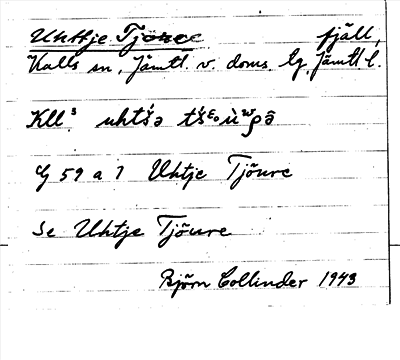 Uhttje Tjöure fjäll,
Kalls sn, Jämtl. v. doms. lg. Jämtl. l.
Kll
G 59 a 7 Uhtje Tjöure
Se Uhtje Tjöure
Björn Collinder 1943